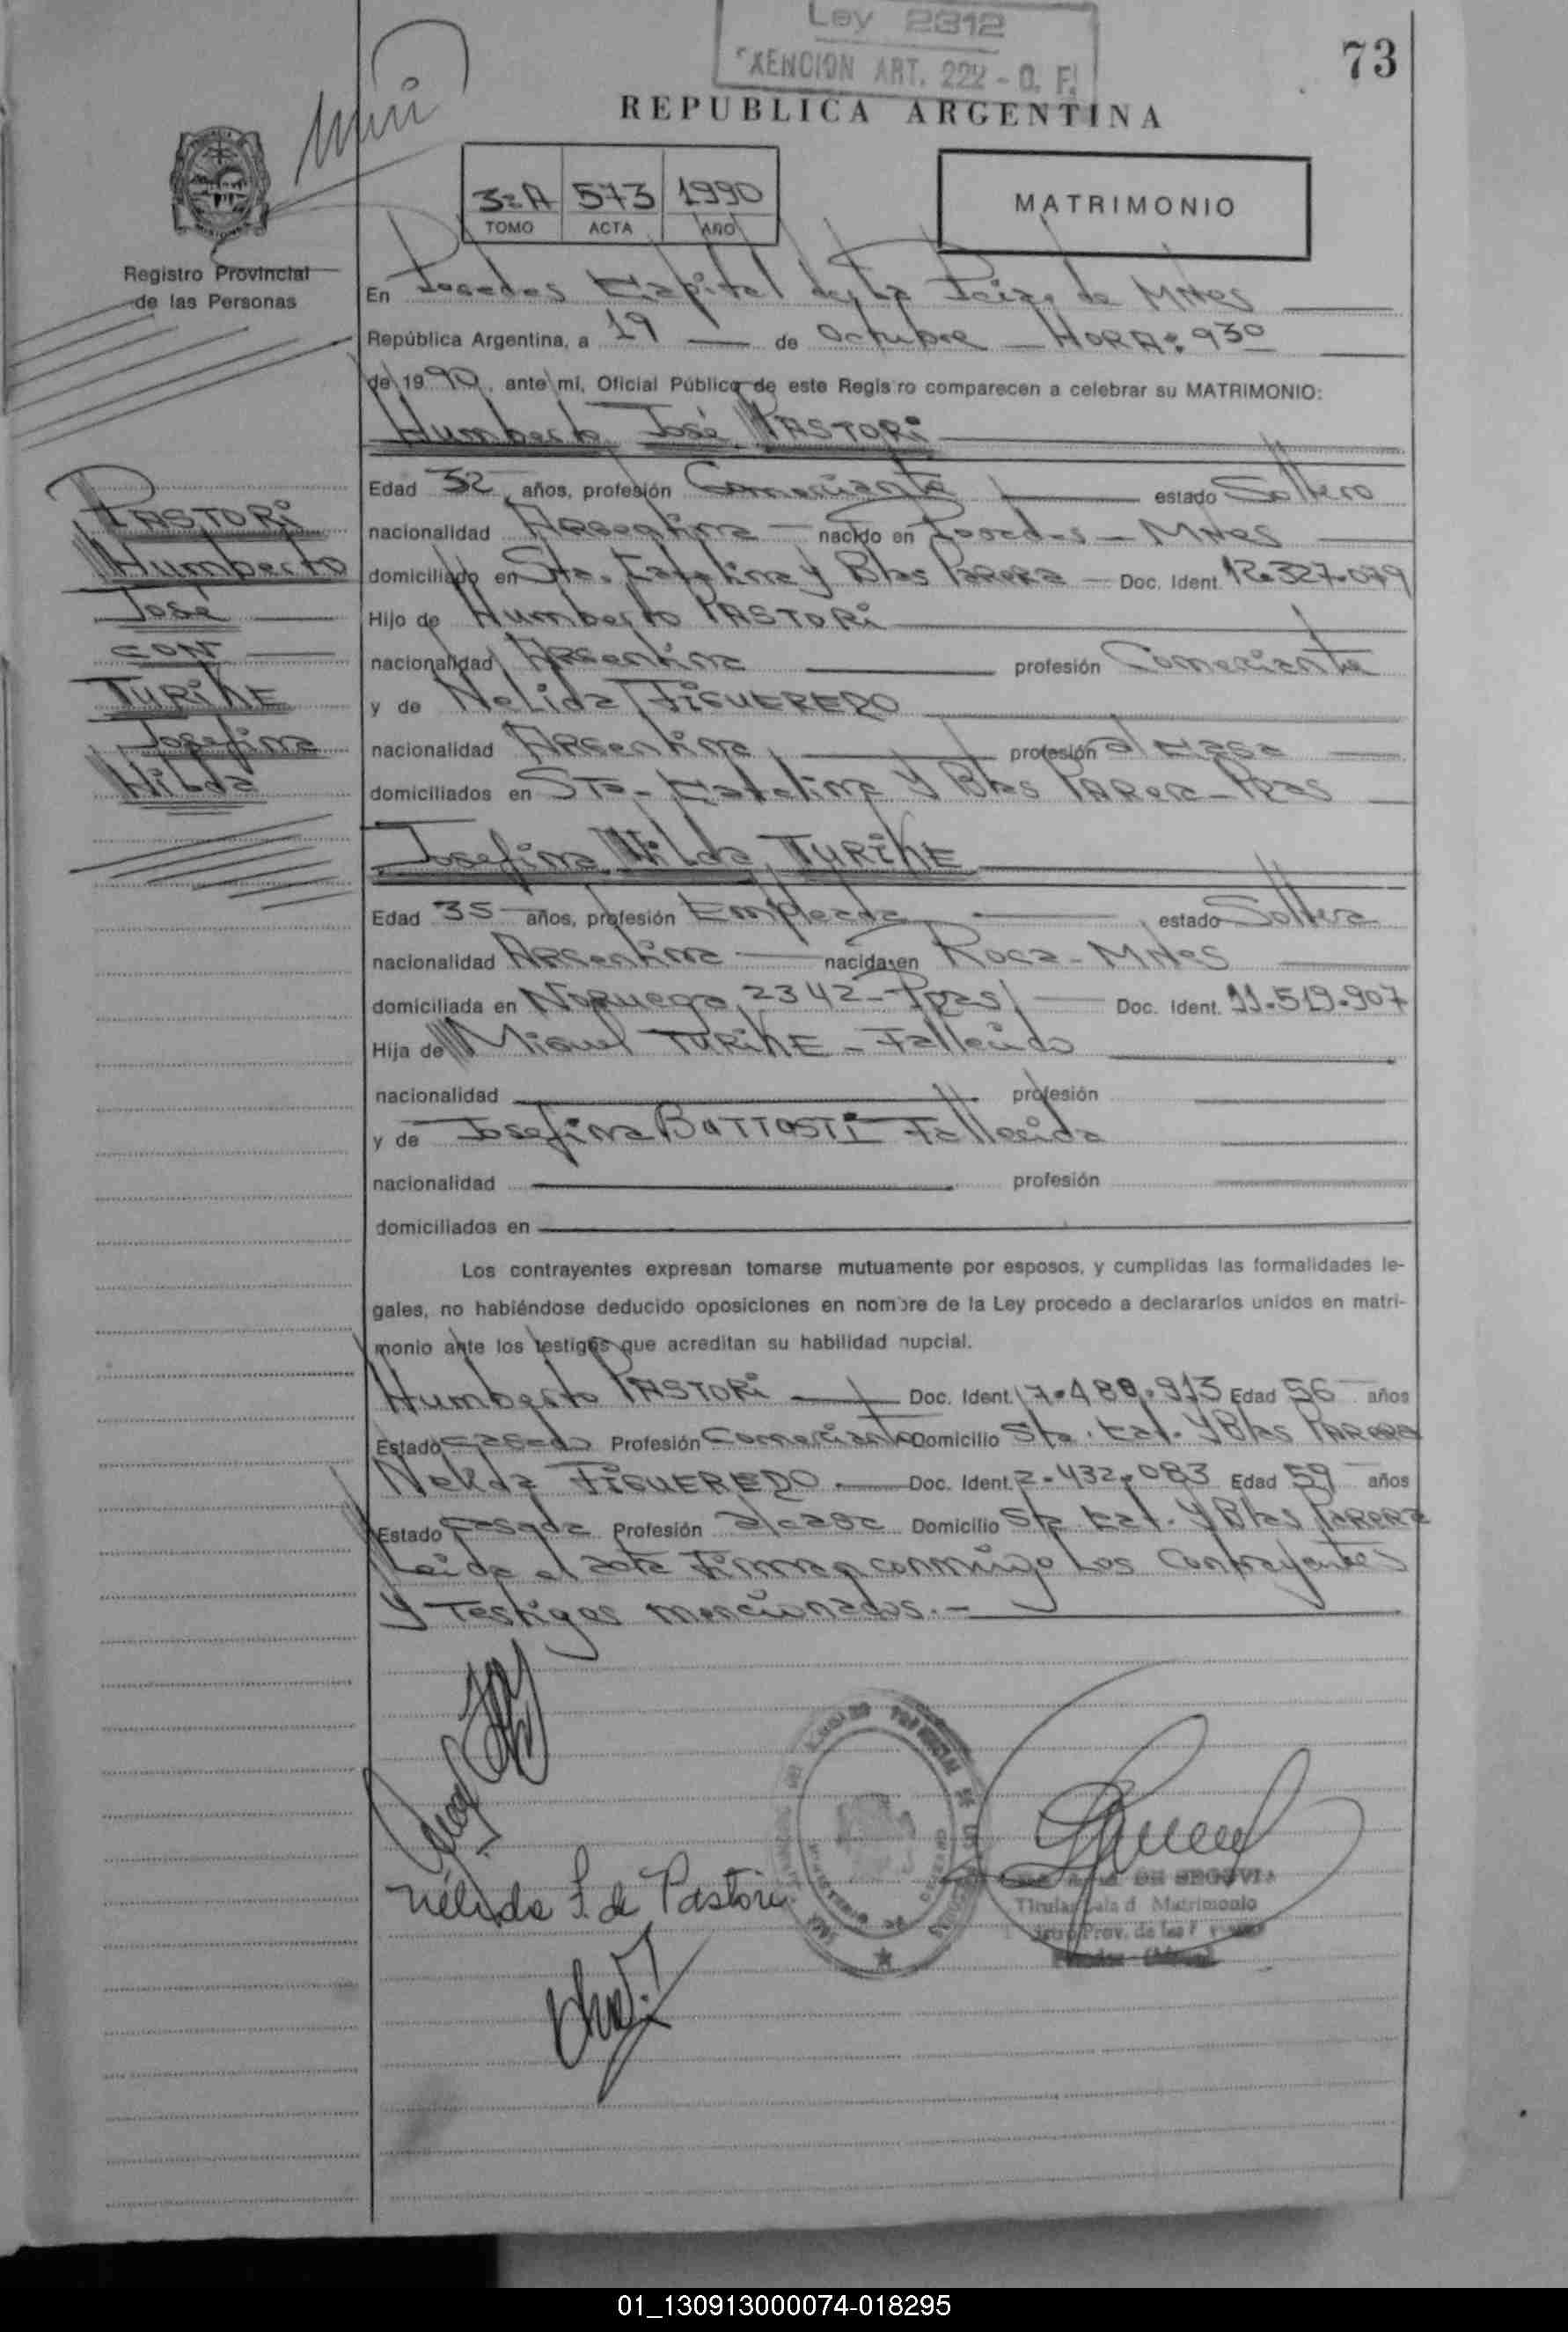 Ley 2312
EXENCION ART. 222 - O. F.
73
REPUBLICA ARGENTINA
3=A 573 1990
TOMO ACTA AÑO
MATRIMONIO
Registro Provincial
de las Personas
En Posadas Capital de la Pcia. de Mnes
República Argentina, a 19 de Octubre HORA: 930
de 1990, ante mi, Oficial Público de este Registro comparecen a celebrar su MATRIMONIO:
Humberto José PASTORi
PASTORi
Humberto
José
CON
TURiKE
Josefina
Nilda
Edad 32 años, profesión Comerciante estado Soltero
nacionalidad Argentina nacido en Posadas - Mnes
domiciliado en Sta. Catalina y Blas Parera Doc. Ident. 12.327.079
Hijo de Humberto PASTORi
nacionalidad Argentina profesión Comerciante
y de Nelida FiGUEREDO
nacionalidad Argentina profesión a/casa
domiciliados en Sta. Catalina y Blas Parera - Pdas
Josefina Nilda TURiKE
Edad 35 años, profesión Empleada estado Soltera
nacionalidad Argentina nacida en Roca - Mnes
domiciliada en Noruega 2342 - Pdas Doc. Ident. 11.519.907
Hija de Miguel TURiKE - Fallecido
nacionalidad profesión
y de Josefina BOTTOSTi Fallecida
nacionalidad profesión
domiciliados en
Los contrayentes expresan tomarse mutuamente por esposos, y cumplidas las formalidades le-
gales, no habiéndose deducido oposiciones en nombre de la Ley procedo a declararlos unidos en matri-
monio ante los testigos que acreditan su habilidad nupcial.
Humberto PASTORi Doc. Ident. 7.480.913 Edad 56 años
Estado casado Profesión Comerciante Domicilio Sta. Cat. y Blas Parera
Nelida FiGUEREDO Doc. Ident. 2.432.083 Edad 59 años
Estado casada Profesión a/casa Domicilio Sta Cat. y Blas Parera
Leida el acta firman conmigo los contrayentes
y testigos mencionados.-
Nélida F. de Pastori
DE SEGOVIA
Titular Sala d Matrimonio
Prov. de las
01_130913000074-018295